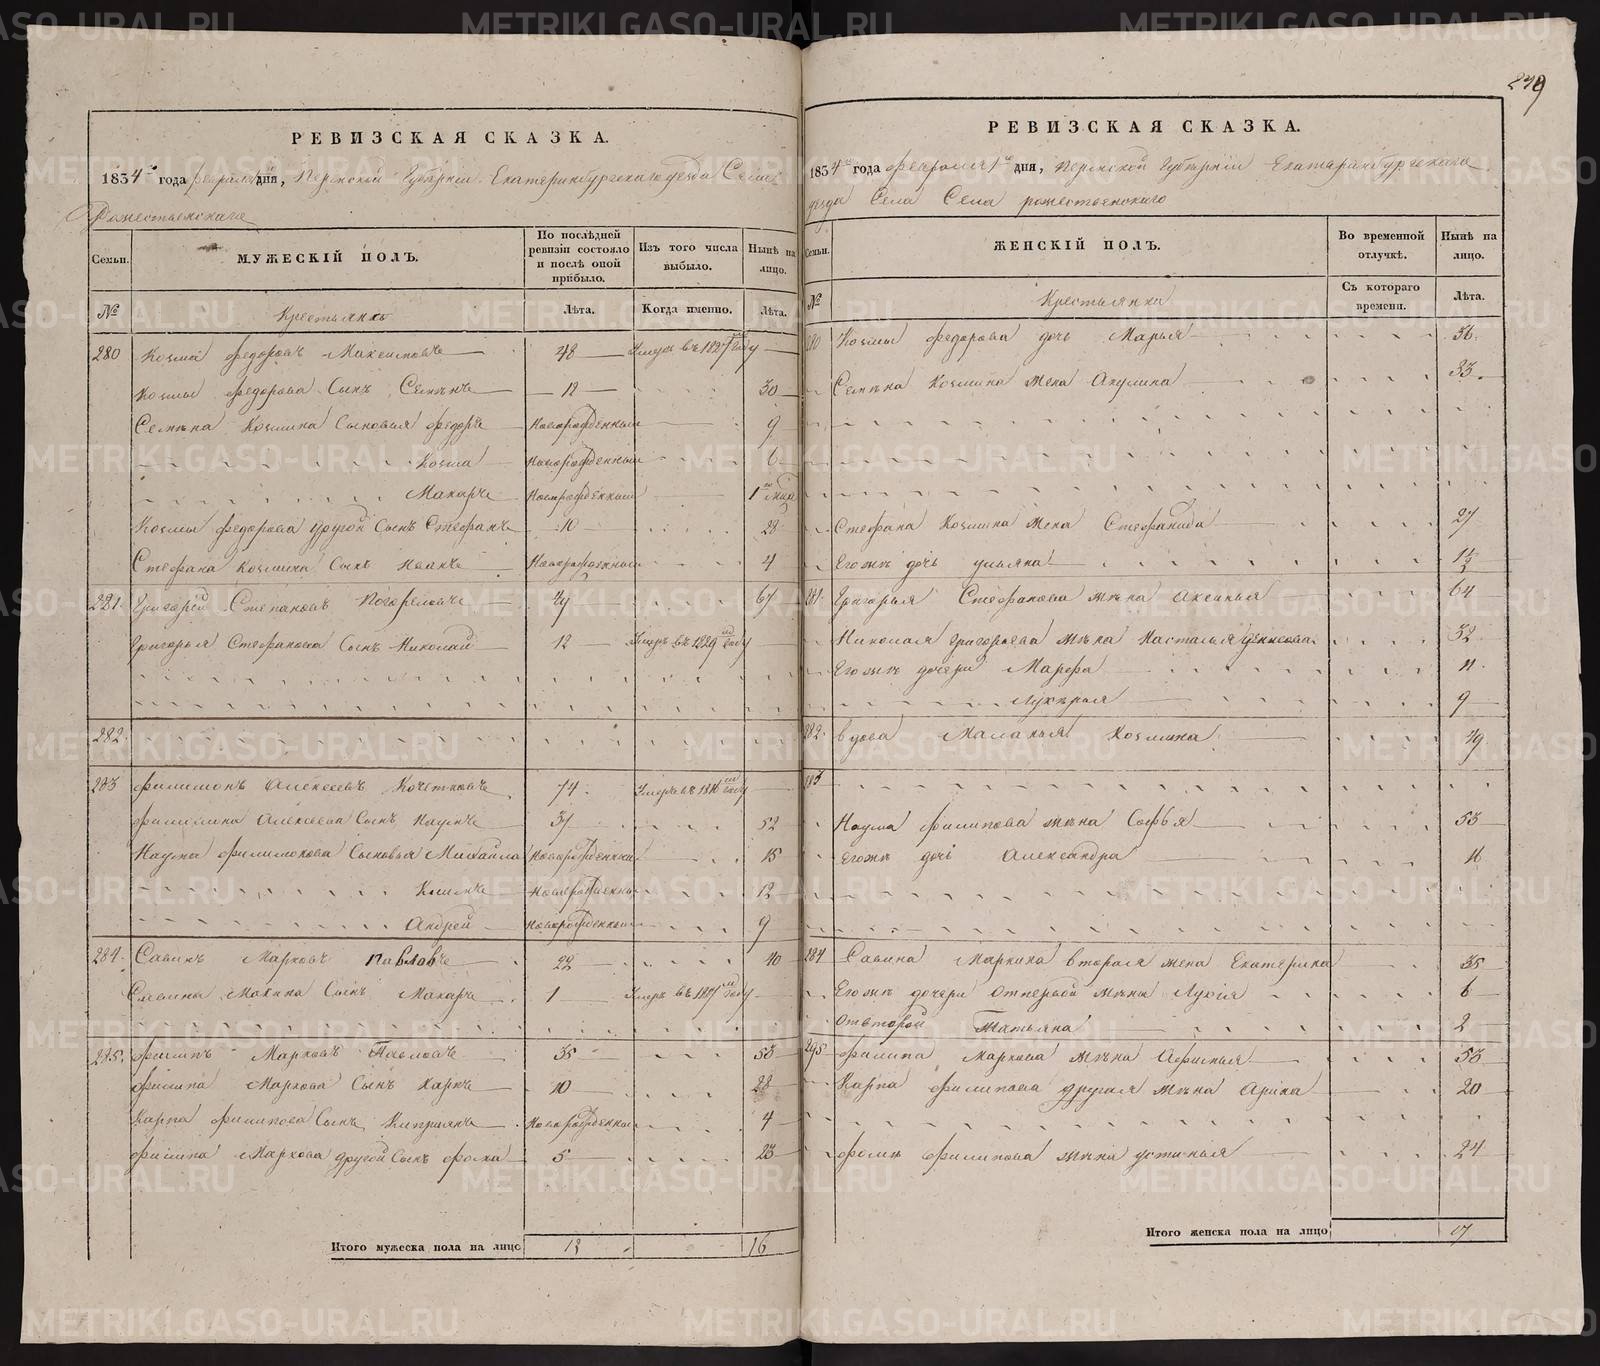 239
РЕВИЗСКАЯ СКАЗКА.
1834 года февраля дня, Пермской Губернии Екатеринбургскаго уезда Села
Рожественскаго
Семьи.
МУЖЕСКІЙ ПОЛЪ.
По послѣдней ревизіи состояло и послѣ оной прибыло.
Изъ того числа выбыло.
Нынѣ на лицо.
№
Крестьянъ
Лѣта.
Когда именно.
Лѣта.
280 Козма Федоровъ 48 Умеръ въ 1827 году
Козмы Федорова Сынъ Семенъ 12 30
Семена Козмина Сыновья Федоръ Новорожденный 9
Козма Новорожденный 6
Макаръ Новорожденный
Козмы Федорова другой Сынъ Стефанъ 10 28
Стефана Козмина Сынъ Иванъ Новорожденный 4
281. Григорей Степановъ 49 67
Григорья Стефанова Сынъ Николай 12 Умеръ въ 1829 году
282.
283 Филимонъ Алексеевъ Кочетковъ 74 Умеръ въ 1816 году
Филимона Алексеева Сынъ Наумъ 34 52
Наума Филимонова Сыновья Михайла Новорожденный 15
Климъ Новорожденны 12
Андрей Новорожденный 9
284. Савинъ Марковъ Павловъ 22 40
Савина Сынъ Макаръ 1 Умеръ въ году
285. Филипъ Марковъ Павловъ 35 53
Филипа Маркова Сынъ Карпъ 10 28
Карпа Филипова Сынъ Киприянъ Новорожденны 4
Филипа Маркова другой Сынъ Фрола 5 23
Итого мужеска пола на лицо 16
РЕВИЗСКАЯ СКАЗКА.
1834 года февраля 1 дня, Пермской Губерніи Екатеринбургскаго
уезда Села Села рожественскаго
Семьи.
ЖЕНСКІЙ ПОЛЪ.
Во временной отлучкѣ.
Нынѣ на лицо.
№
Крестьянка
Съ котораго времени.
Лѣта.
280 Козмы Федорова дочь Марья 36
Семена Козмина жена Акулина 33
Стефана Козмина жена Стефанида 27
Его же дочь ульяна
281. Григорья Стефанова жена Аксинья 64
Николая Григорьева жена Насталья 32
Его же дочери Марфа 11
Лукерья 9
282. вдова Маланья Козмина 49
283
Наума Филипова жена Софья 53
Его же дочь Александра 16
284 Савина Маркина вторая жена Екатерина 35
Его же дочери от первой жены 6
от второй Татьяна 2
295. Филипа Маркова жена Афимья 53
Карпа Филипова другая жена Арина 20
Фрола Филипова жена устинья 24
Итого женска пола на лицо 17
METRIKI.GASO-URAL.RU